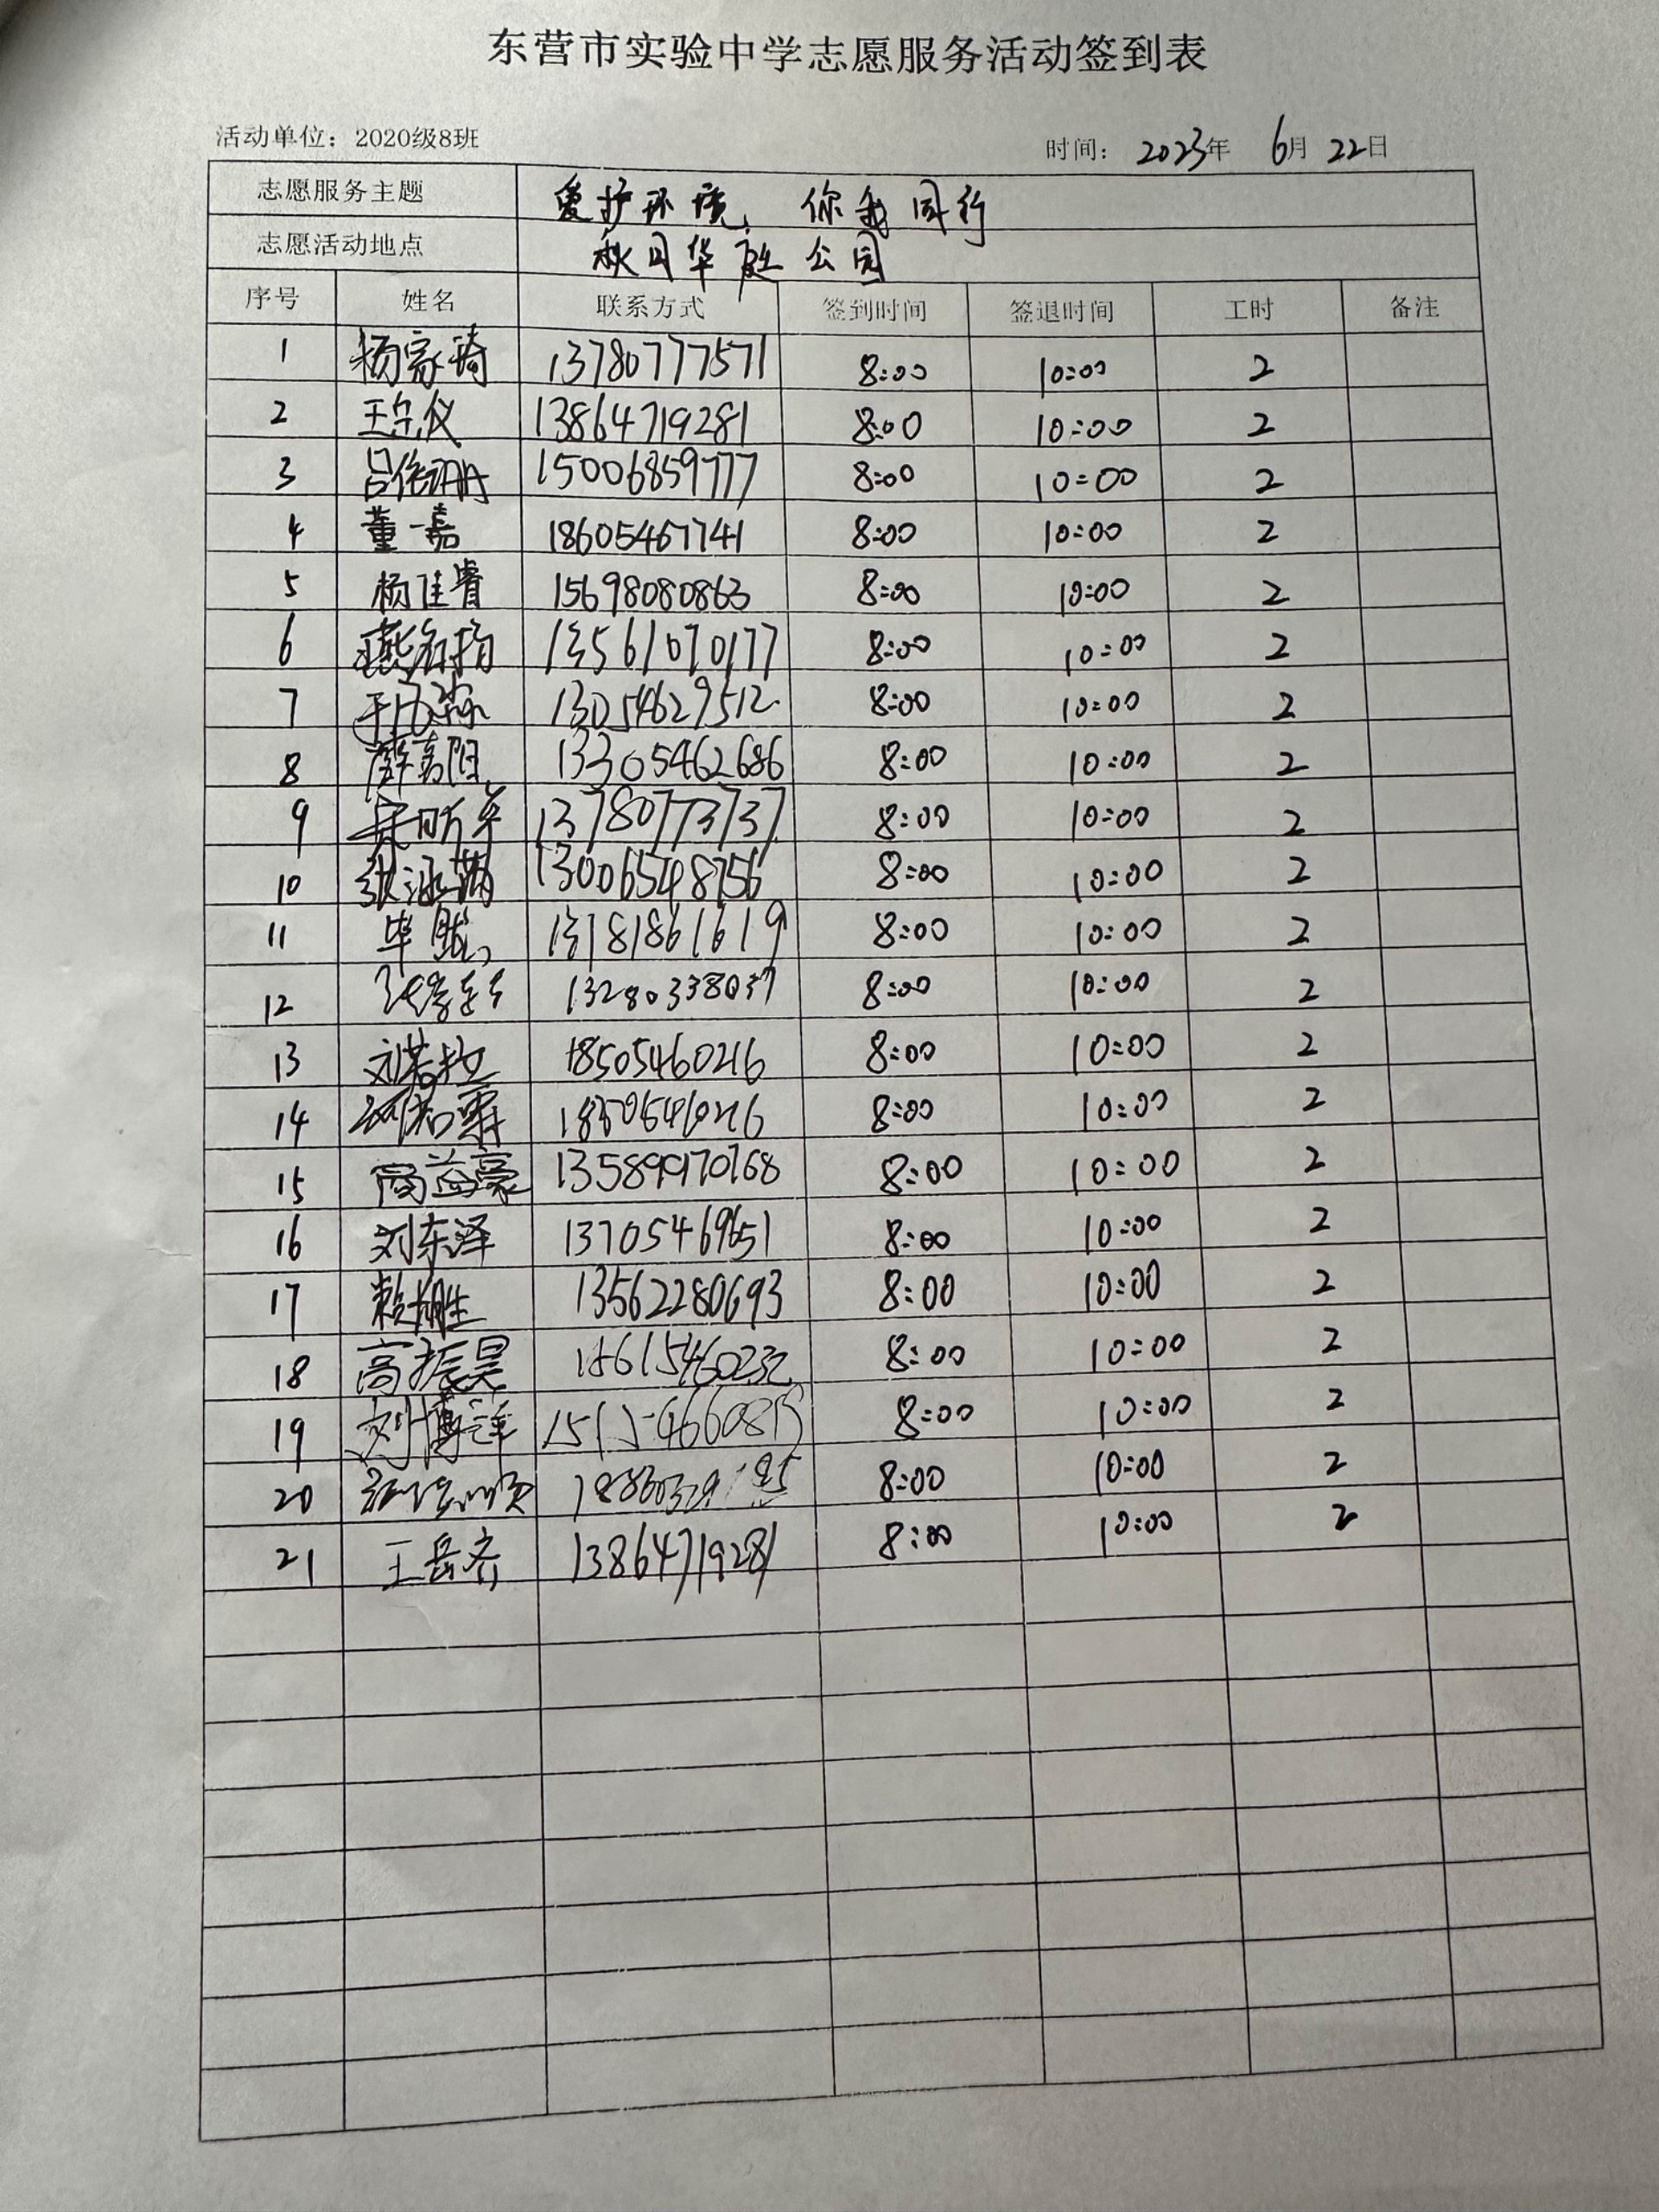 东营市实验中学志愿服务活动签到表
活动单位：2020级8班 时间：2023年 6月 22日
志愿服务主题 爱护环境，你我同行
志愿活动地点 秋月华庭公园
序号 姓名 联系方式 签到时间 签退时间 工时 备注
1 杨家琦 13780777571 8:00 10:00 2
2 王乐仪 13864719281 8:00 10:00 2
3 吕依珊 15006859777 8:00 10:00 2
4 董一嘉 18605467741 8:00 10:00 2
5 杨佳睿 15698080863 8:00 10:00 2
6 13561070177 8:00 10:00 2
7 13054629512 8:00 10:00 2
8 薛嘉阳 13305462686 8:00 10:00 2
9 13780773737 8:00 10:00 2
10 张涵満 13006548756 8:00 10:00 2
11 毕胧 13181861619 8:00 10:00 2
12 13280338037 8:00 10:00 2
13 刘若拉 18505460216 8:00 10:00 2
14 8:00 10:00 2
15 高益豪 13589970768 8:00 10:00 2
16 刘东泽 13705469651 8:00 10:00 2
17 13562280693 8:00 10:00 2
18 高振昊 15615460232 8:00 10:00 2
19 刘博泽 8:00 10:00 2
20 8:00 10:00 2
21 王岳齐 13864719281 8:00 10:00 2